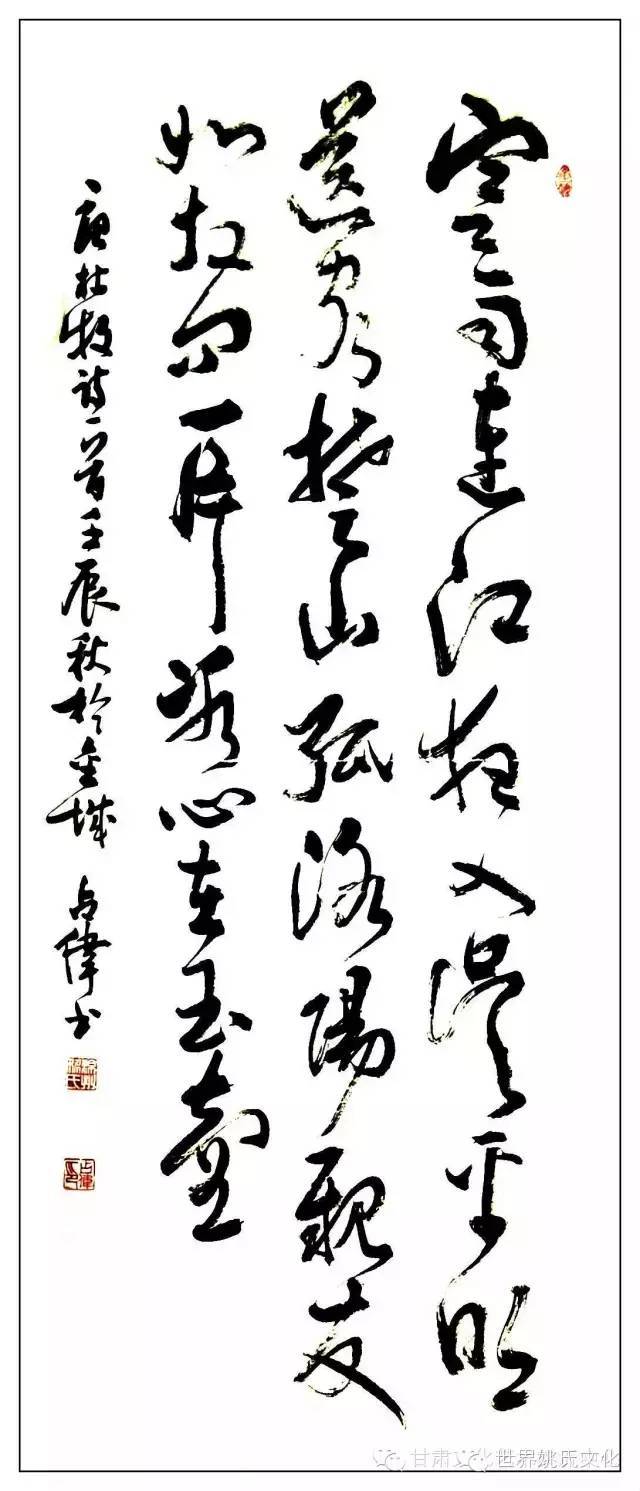 寒雨連江夜入吳平明
送客楚山孤洛陽親友
如相問一片冰心在玉壺
唐杜牧詩一首壬辰秋於金城 占偉书
甘肃文化
世界姚氏文化